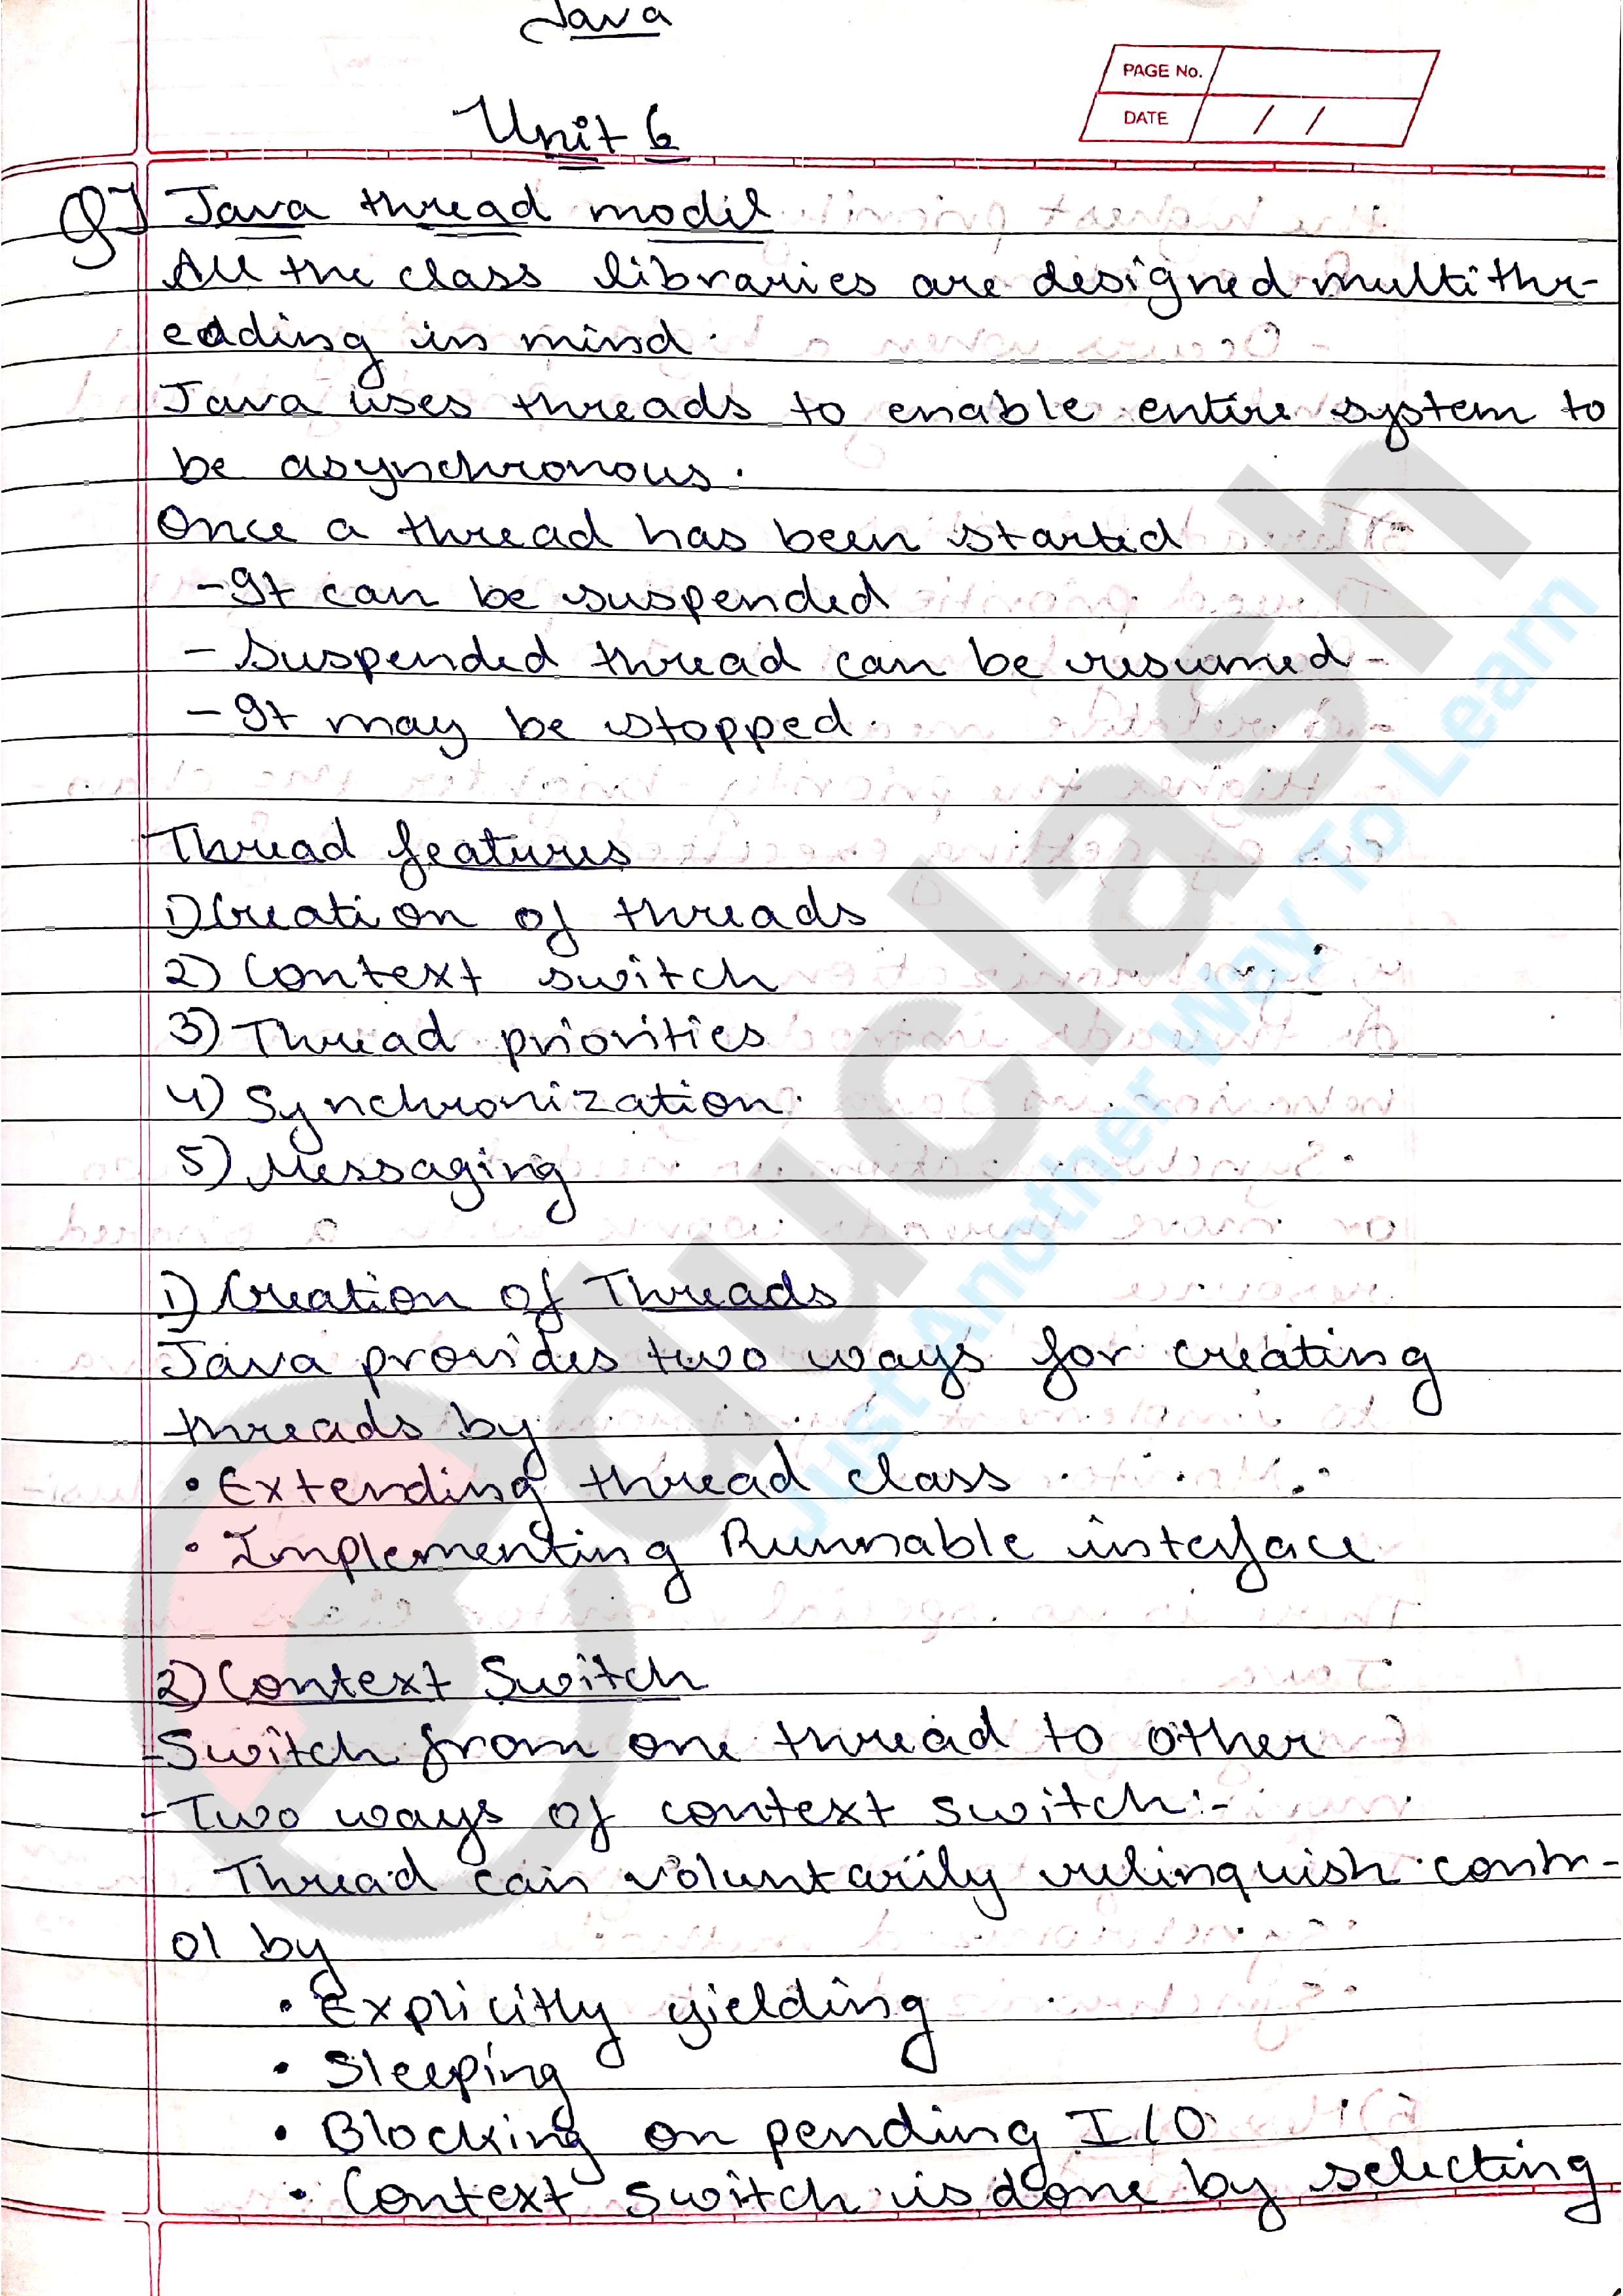 Java
PAGE No.
DATE / /
Unit 6
Q] Java thread model
All the class libraries are designed multithr-
eading in mind.
Java uses threads to enable entire system to
be asynchronous.
Once a thread has been started
- It can be suspended
- Suspended thread can be resumed-
- It may be stopped.
Thread features
1) Creation of threads
2) Context switch
3) Thread priorities
4) Synchronization.
5) Messaging
1) Creation of Threads
Java provides two ways for creating
threads by
• Extending thread class
• Implementing Runnable interface
2) Context Switch
- Switch from one thread to other
- Two ways of context switch:-
Thread can voluntarily relinquish contr-
ol by
• Explicitly yielding
• Sleeping
• Blocking on pending I/O
• Context switch is done by selecting
educlash
Just Another Way To Learn